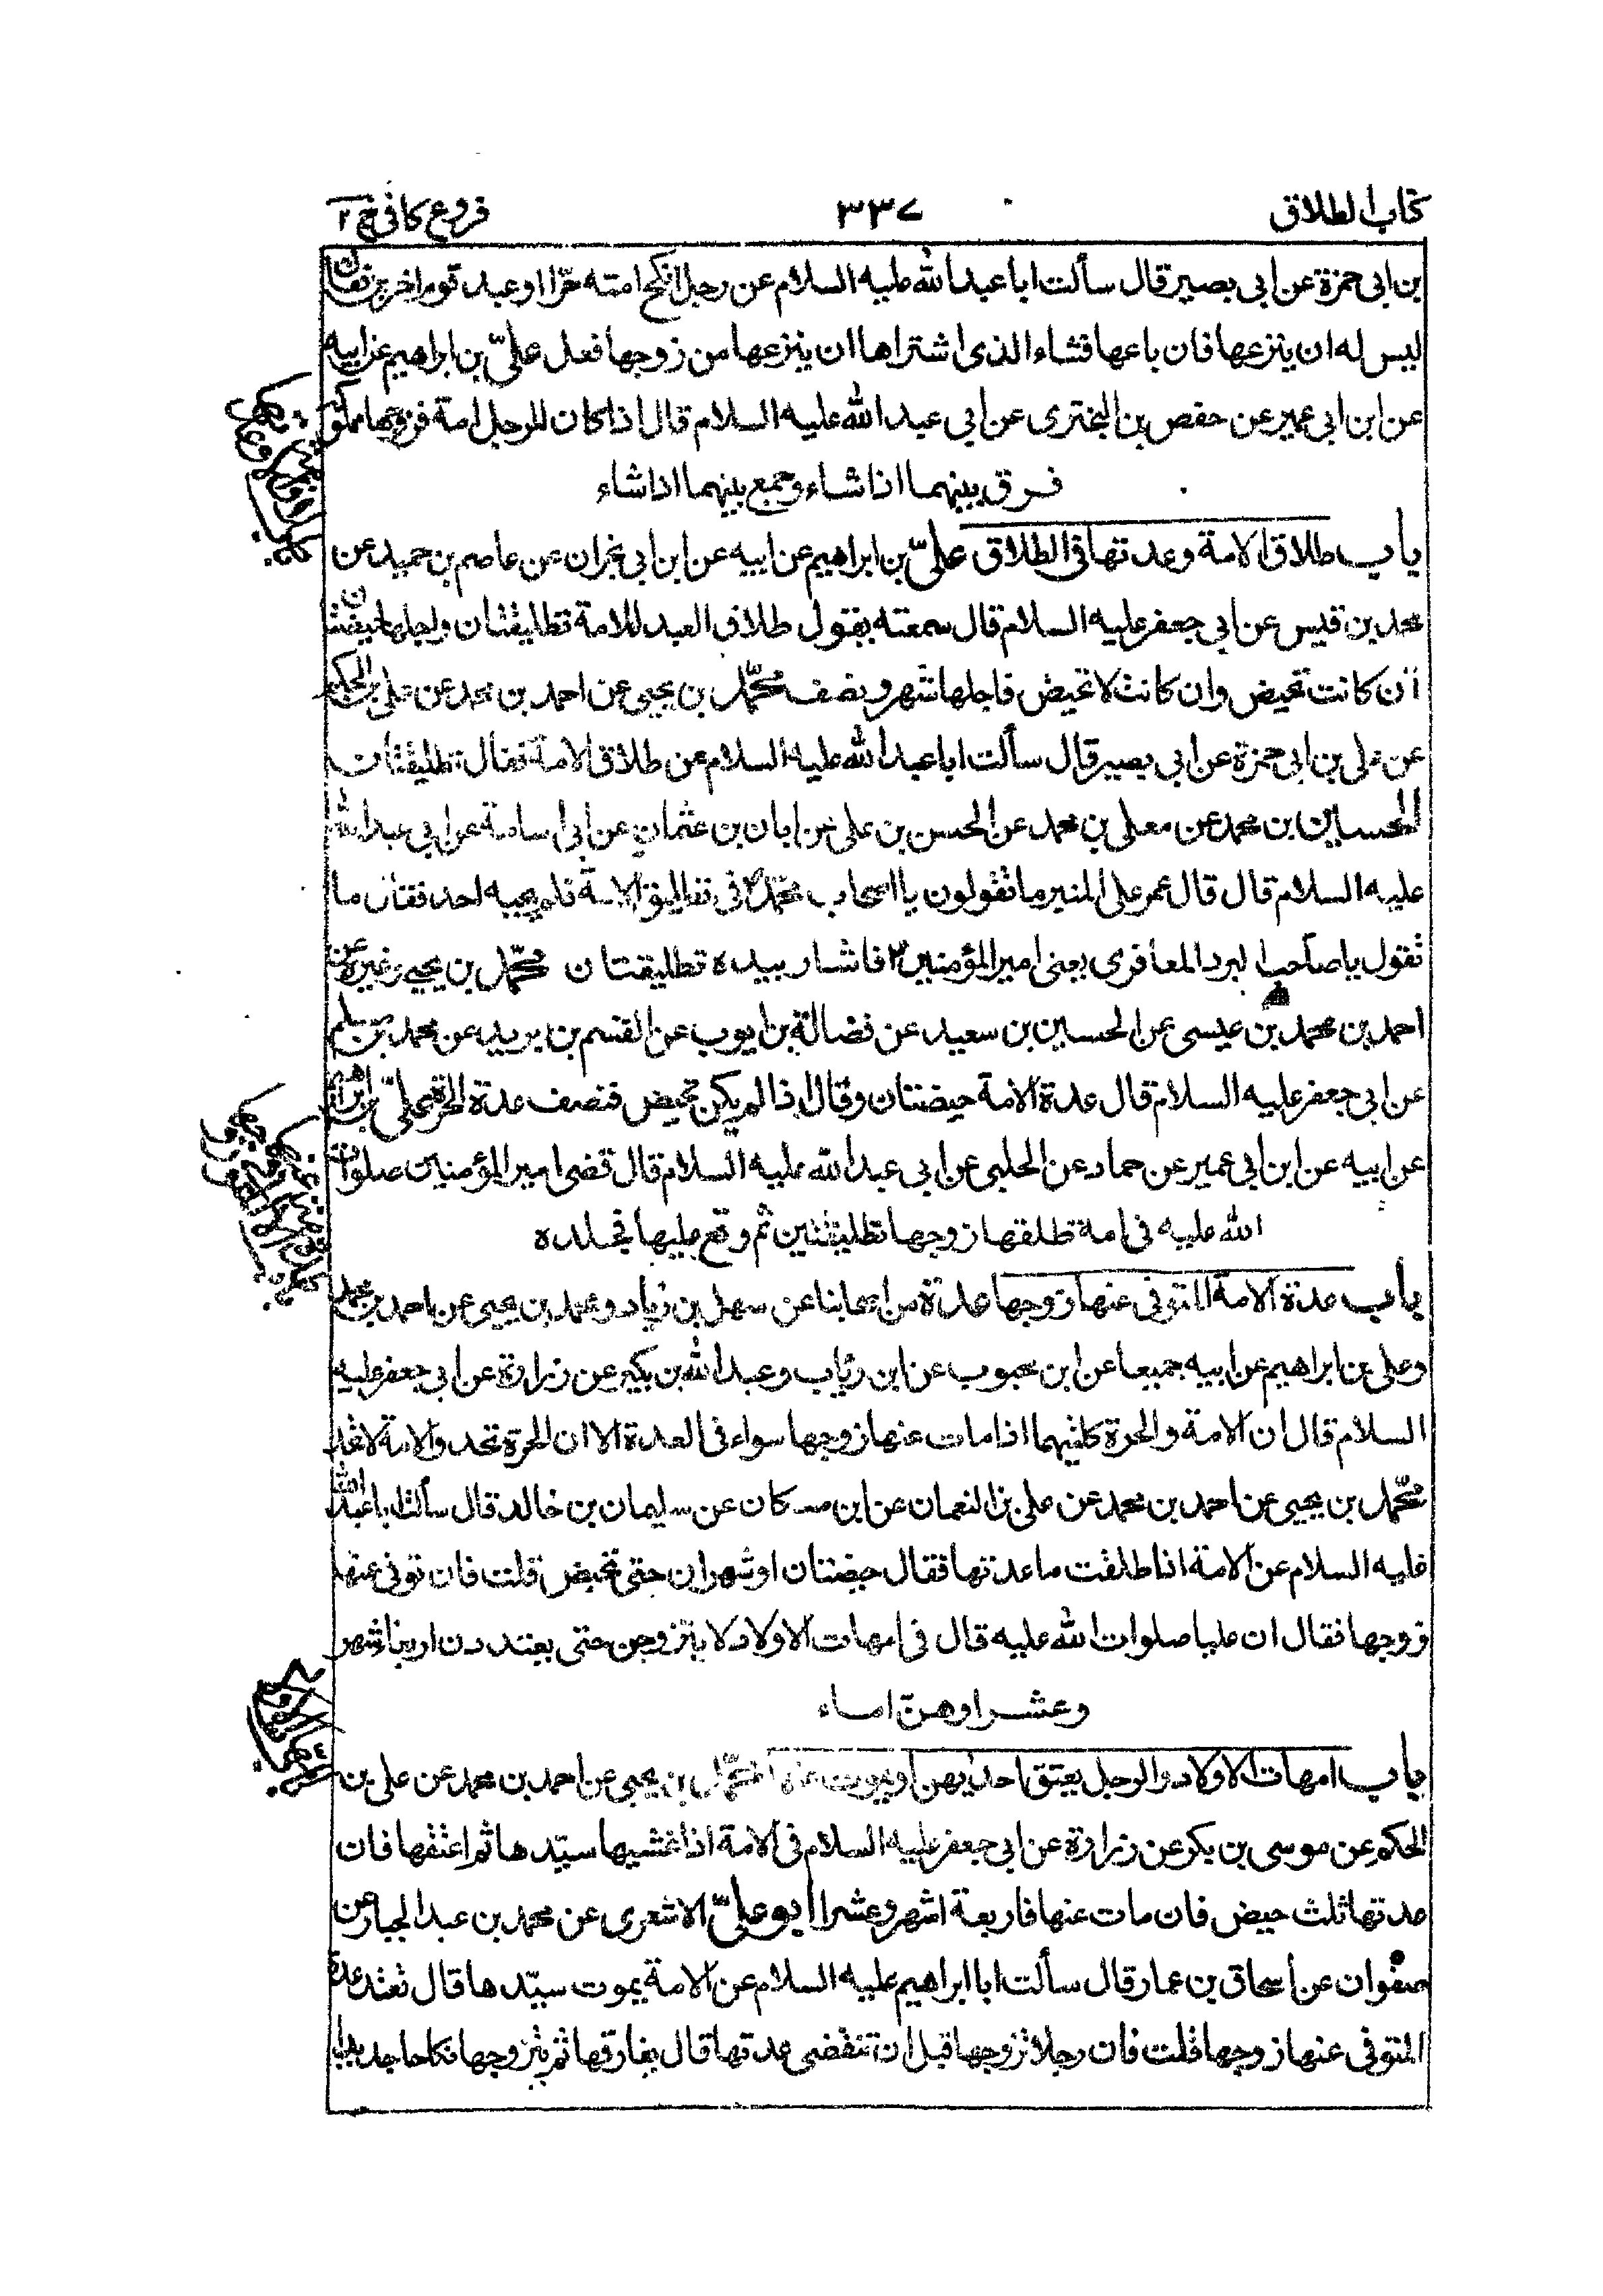 كتاب الطلاق ٣٣٧ فروع كافى ج ٢
بن ابى حمزة عن ابى بصير قال سألت ابا عبد الله عليه السلام عن رجل انكح امته حرّا او عبد قوم اخرين فقال
ليس له ان ينزعها فان باعها فشاء الذى اشتراها ان ينزعها من زوجها فعل علىّ بن ابراهيم عن ابيه
عن ابن ابى عمير عن حفص بن البخترى عن ابى عبد الله عليه السلام قال اذا كان للرجل امة فزوجها مملوكه
فرق بينهما اذا شاء وجمع بينهما اذا شاء
باب طلاق الامة وعدتها فى الطلاق علىّ بن ابراهيم عن ابيه عن ابن ابى نجران عن عاصم بن حميد عن
محمد بن قيس عن ابى جعفر عليه السلام قال سمعته يقول طلاق العبد للامة تطليقتان واجلها حيضتان
ان كانت تحيض وان كانت لا تحيض فاجلها شهر ونصف محمّد بن يحيى عن احمد بن محمد عن على بن الحكم
عن على بن ابى حمزة عن ابى بصير قال سألت ابا عبد الله عليه السلام عن طلاق الامة فقال تطليقتان
الحسين بن محمد عن معلى بن محمد عن الحسن بن على عن ابان بن عثمان عن ابى اسامة عن ابى عبد الله
عليه السلام قال قال عمر على المنبر ما تقولون يا اصحاب محمّد فى تطليق الامة فلم يجبه احد فقال ما
تقول يا صاحب البرد المعافرى يعنى امير المؤمنين ٢ فاشار بيده تطليقتان محمّد بن يحيى وغيره عن
احمد بن محمد بن عيسى عن الحسين بن سعيد عن فضالة بن ايوب عن القسم بن بريد عن محمد بن مسلم
عن ابى جعفر عليه السلام قال عدة الامة حيضتان وقال اذا لم يكن تحيض فنصف عدة الحرة علىّ بن ابراهيم
عن ابيه عن ابن ابى عمير عن حماد عن الحلبى عن ابى عبد الله عليه السلام قال قضى امير المؤمنين صلوات
الله عليه فى امة طلقها زوجها تطليقتين ثم وقع عليها فجلده
باب عدة الامة المتوفى عنها زوجها عدة من اصحابنا عن سهل بن زياد ومحمد بن يحيى عن احمد بن محمد
وعلى بن ابراهيم عن ابيه جميعا عن ابن محبوب عن ابن رئاب وعبد الله بن بكير عن زرارة عن ابى جعفر عليه
السلام قال ان الامة والحرة كلتيهما اذا مات عنها زوجها سواء فى العدة الا ان الحرة تحد والامة لا تحد
محمّد بن يحيى عن احمد بن محمد عن على بن النعمان عن ابن مسكان عن سليمان بن خالد قال سألت ابا عبد الله
عليه السلام عن الامة اذا طلقت ما عدتها فقال حيضتان او شهران حتى تحيض قلت فان توفى عنها
زوجها فقال ان عليا صلوات الله عليه قال فى امهات الاولاد لا يتزوجن حتى يعتددن اربعة اشهر
وعشرا وهنّ اماء
باب امهات الاولاد والرجل يعتق احديهن او يموت عنها محمّد بن يحيى عن احمد بن محمد عن على بن
الحكم عن موسى بن بكر عن زرارة عن ابى جعفر عليه السلام فى الامة اذا غشيها سيّدها ثم اعتقها فان
عدتها ثلث حيض فان مات عنها فاربعة اشهر وعشرا ابو علىّ الاشعرى عن محمد بن عبد الجبار عن
صفوان عن اسحاق بن عمار قال سألت ابا ابراهيم عليه السلام عن الامة يموت سيّدها قال تعتد عدة
المتوفى عنها زوجها قلت فان رجلا تزوجها قبل ان تنقضى عدتها قال يفارقها ثم يتزوجها نكاحا جديدا